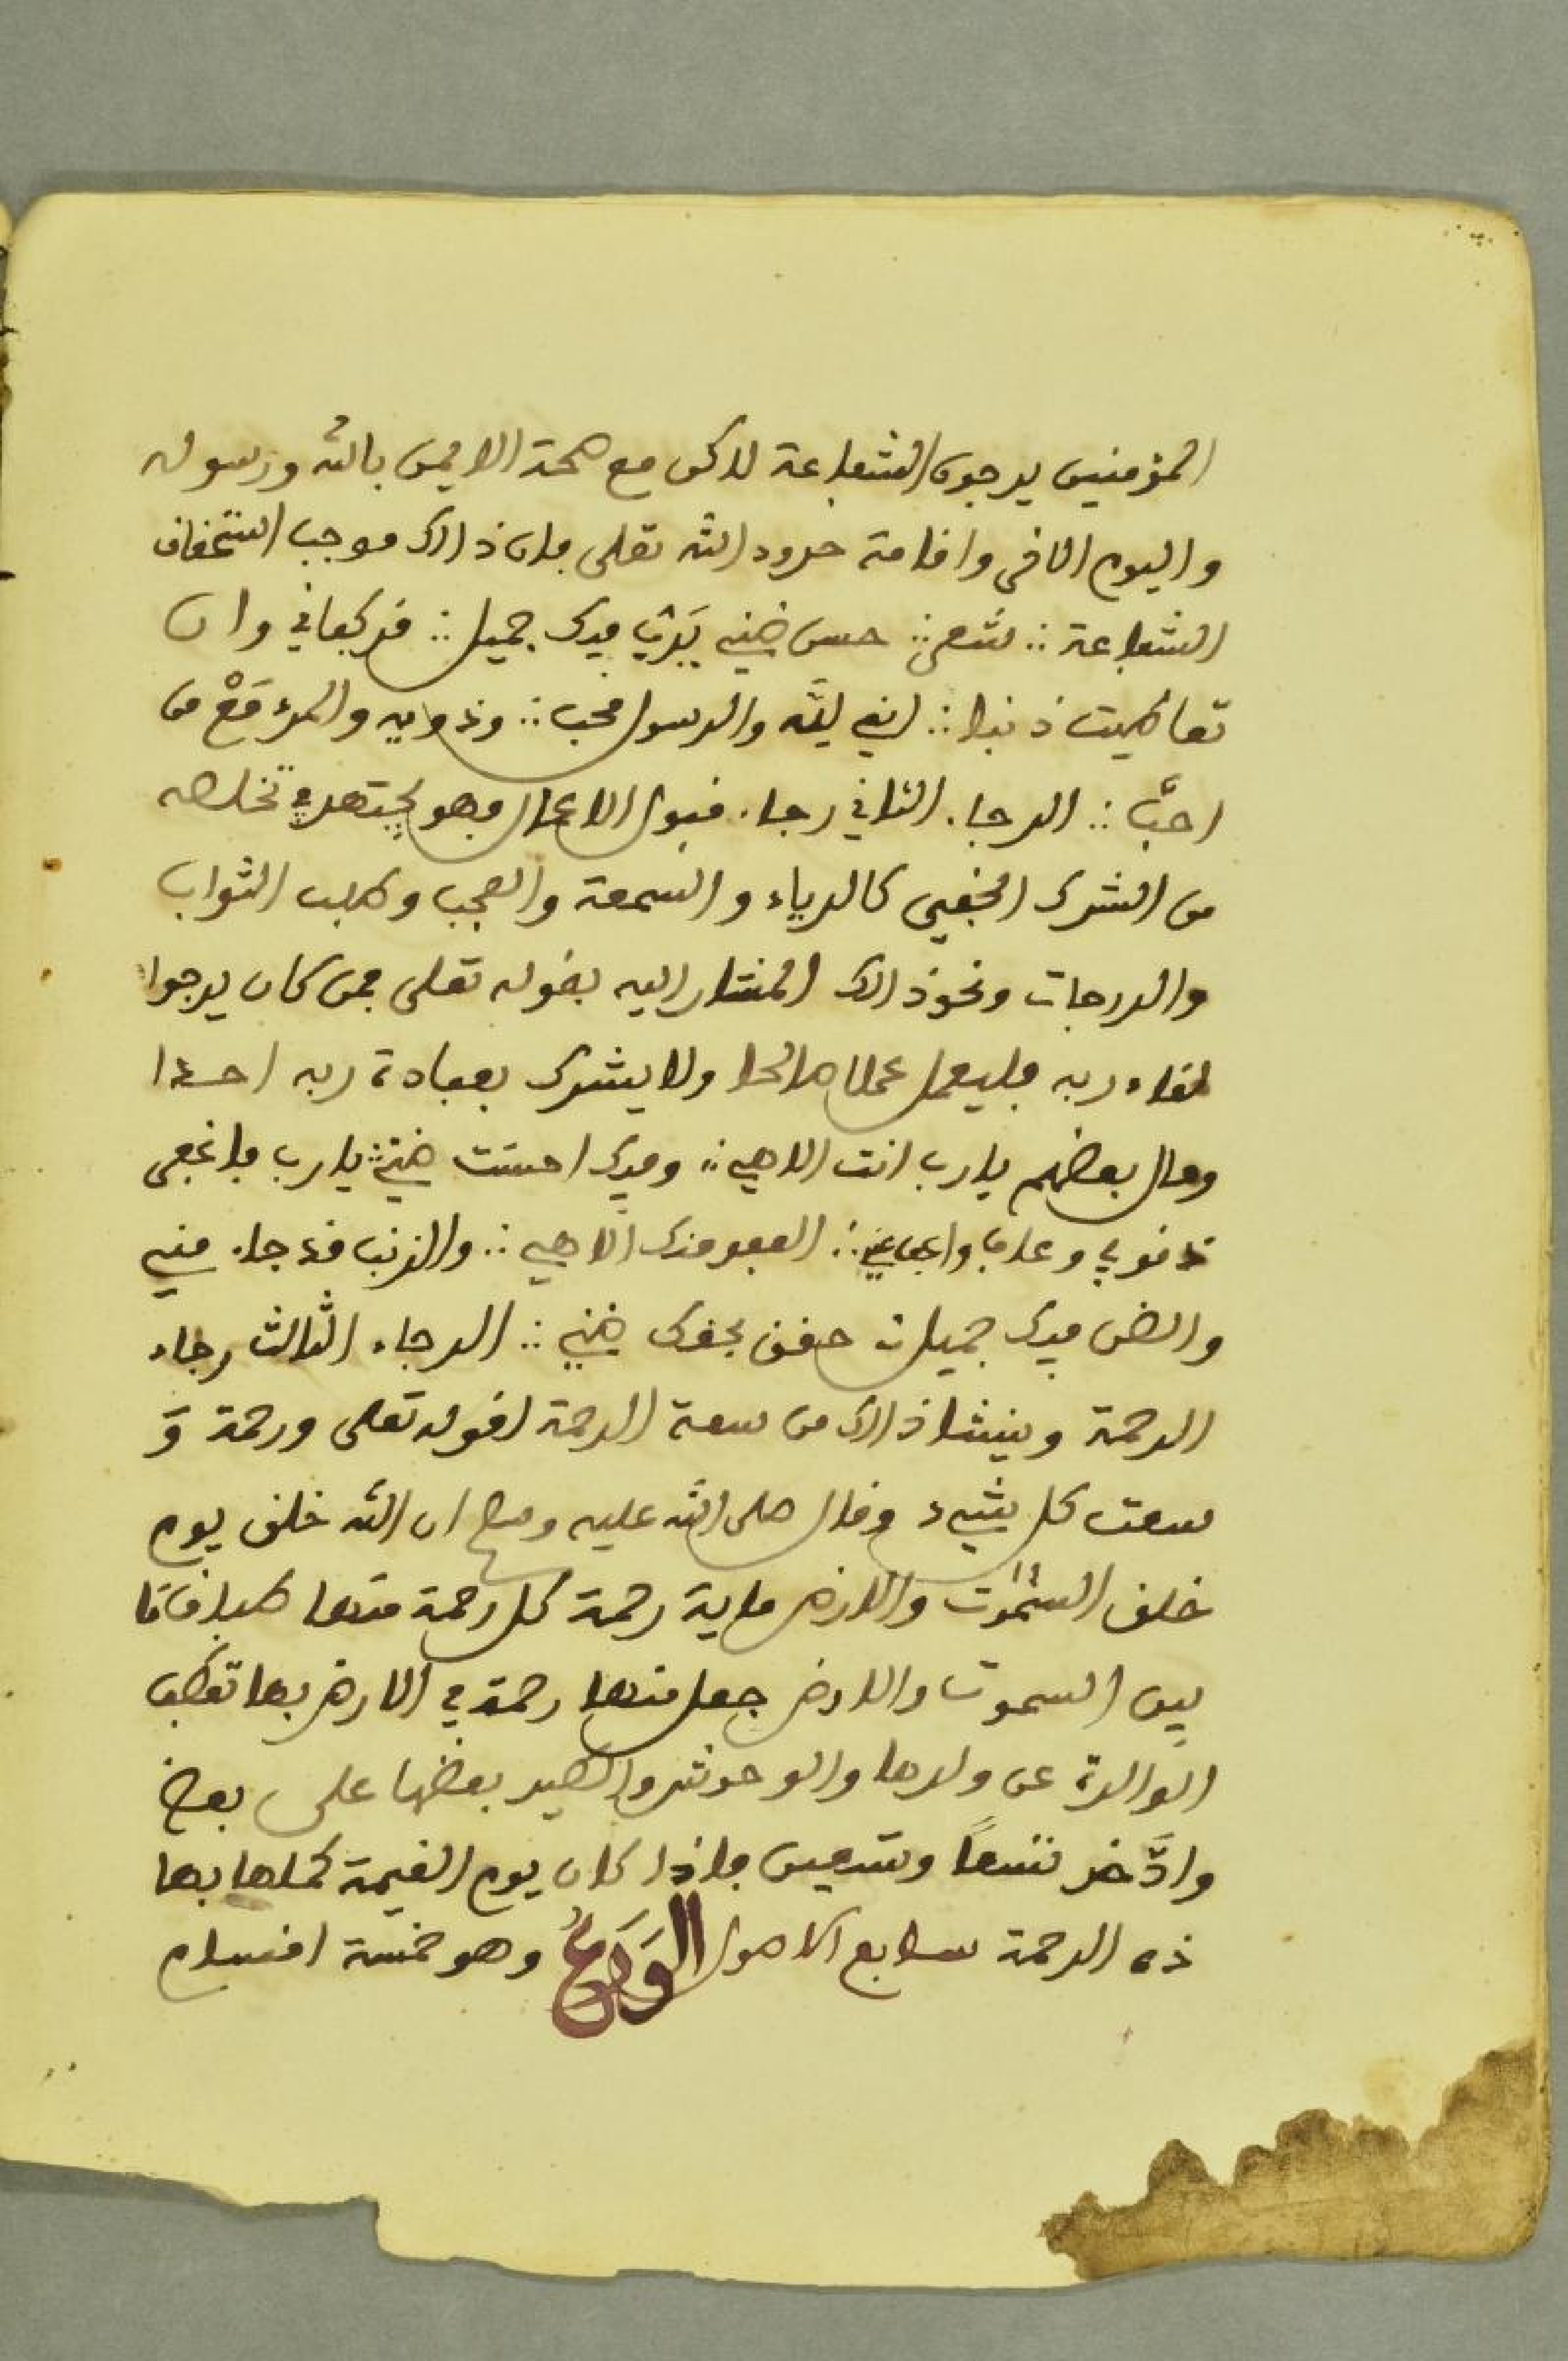 المؤمنين يرجون الشفاعة لاكن مع صحة الايمن بالله ورسوله
واليوم الاخر واقامة حدود الله تعلى فان ذالك موجب استحقاق
الشفاعة ∴ شعر ∴ حسن ضني يرب فيك جميل ∴ قد كفاني وان
تعاطيت ذنبا ∴ انني لله والرسول محب ∴ وذويه والمرء مَعْ من
احبّ ∴ الرجاء الثاني رجاء قبول الاعمال فهو يجتهد في تخلصه
من الشرك الخفي كالرياء والسمعة والعجب وطلب الثواب
والدرجات ونحو ذالك المشار اليه بقوله تعلى فمن كان يرجوا
لقاء ربه فليعمل عملا صالحا ولا يشرك بعبادة ربه احدا
وقال بعضهم يا رب انت الاهي ∴ وفيك احسنت ضني ∴ يا رب فاغفر
ذنوبي وعاف واعف عني ∴ العفو منك الاهي ∴ والذنب قد جاء مني
والضن فيك جميل ∴ حقق بحقك ضني ∴ الرجاء الثالث رجاء
الرحمة وينشا ذالك من سعة الرحمة لقوله تعلى ورحمة وَ
سعت كل شيء وقال صلى الله عليه وسلم ان الله خلق يوم
خلق السموت والارض ماية رحمة كل رحمة منها طباق ما
بين السموت والارض جعل منها رحمة في الارض بها تعطف
الوالدة عن ولدها والوحوش والطير بعضها على بعض
وادّخر تسعاً وتسعين فاذا كان يوم القيمة كملها بها
ذه الرحمة سابع الاصول الوَرَعُ وهو خمسة اقسام